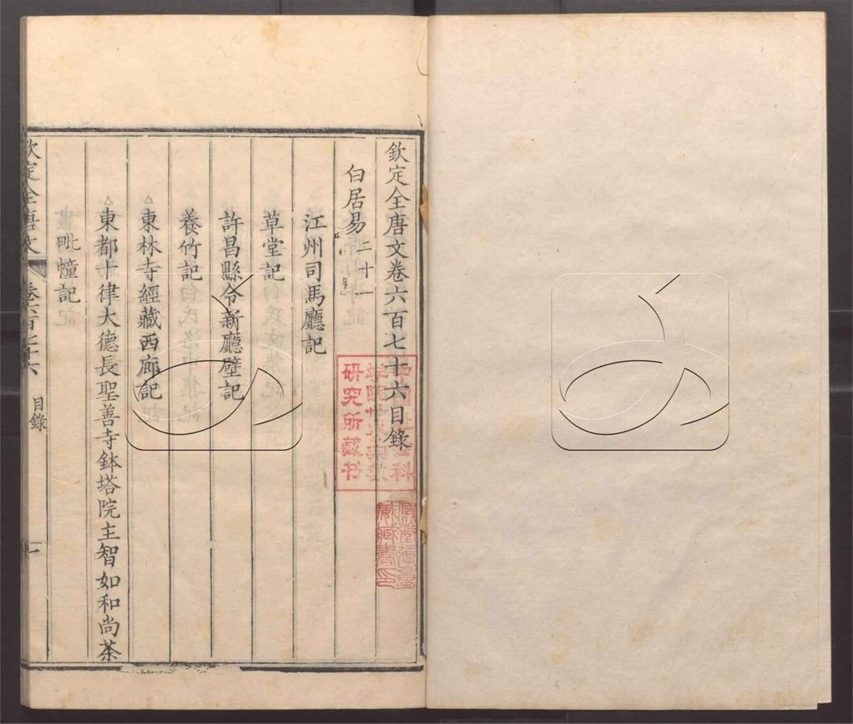 欽定全唐文卷六百七十六目錄
白居易二十一
江州司馬廳記
草堂記
許昌縣令新廳壁記
養竹記
△東林寺經藏西廊記
△東都十律大德長聖善寺鉢塔院主智如和尚荼
毗幢記
欽定全唐文 卷六百七十六 目錄 一
研究所藏书